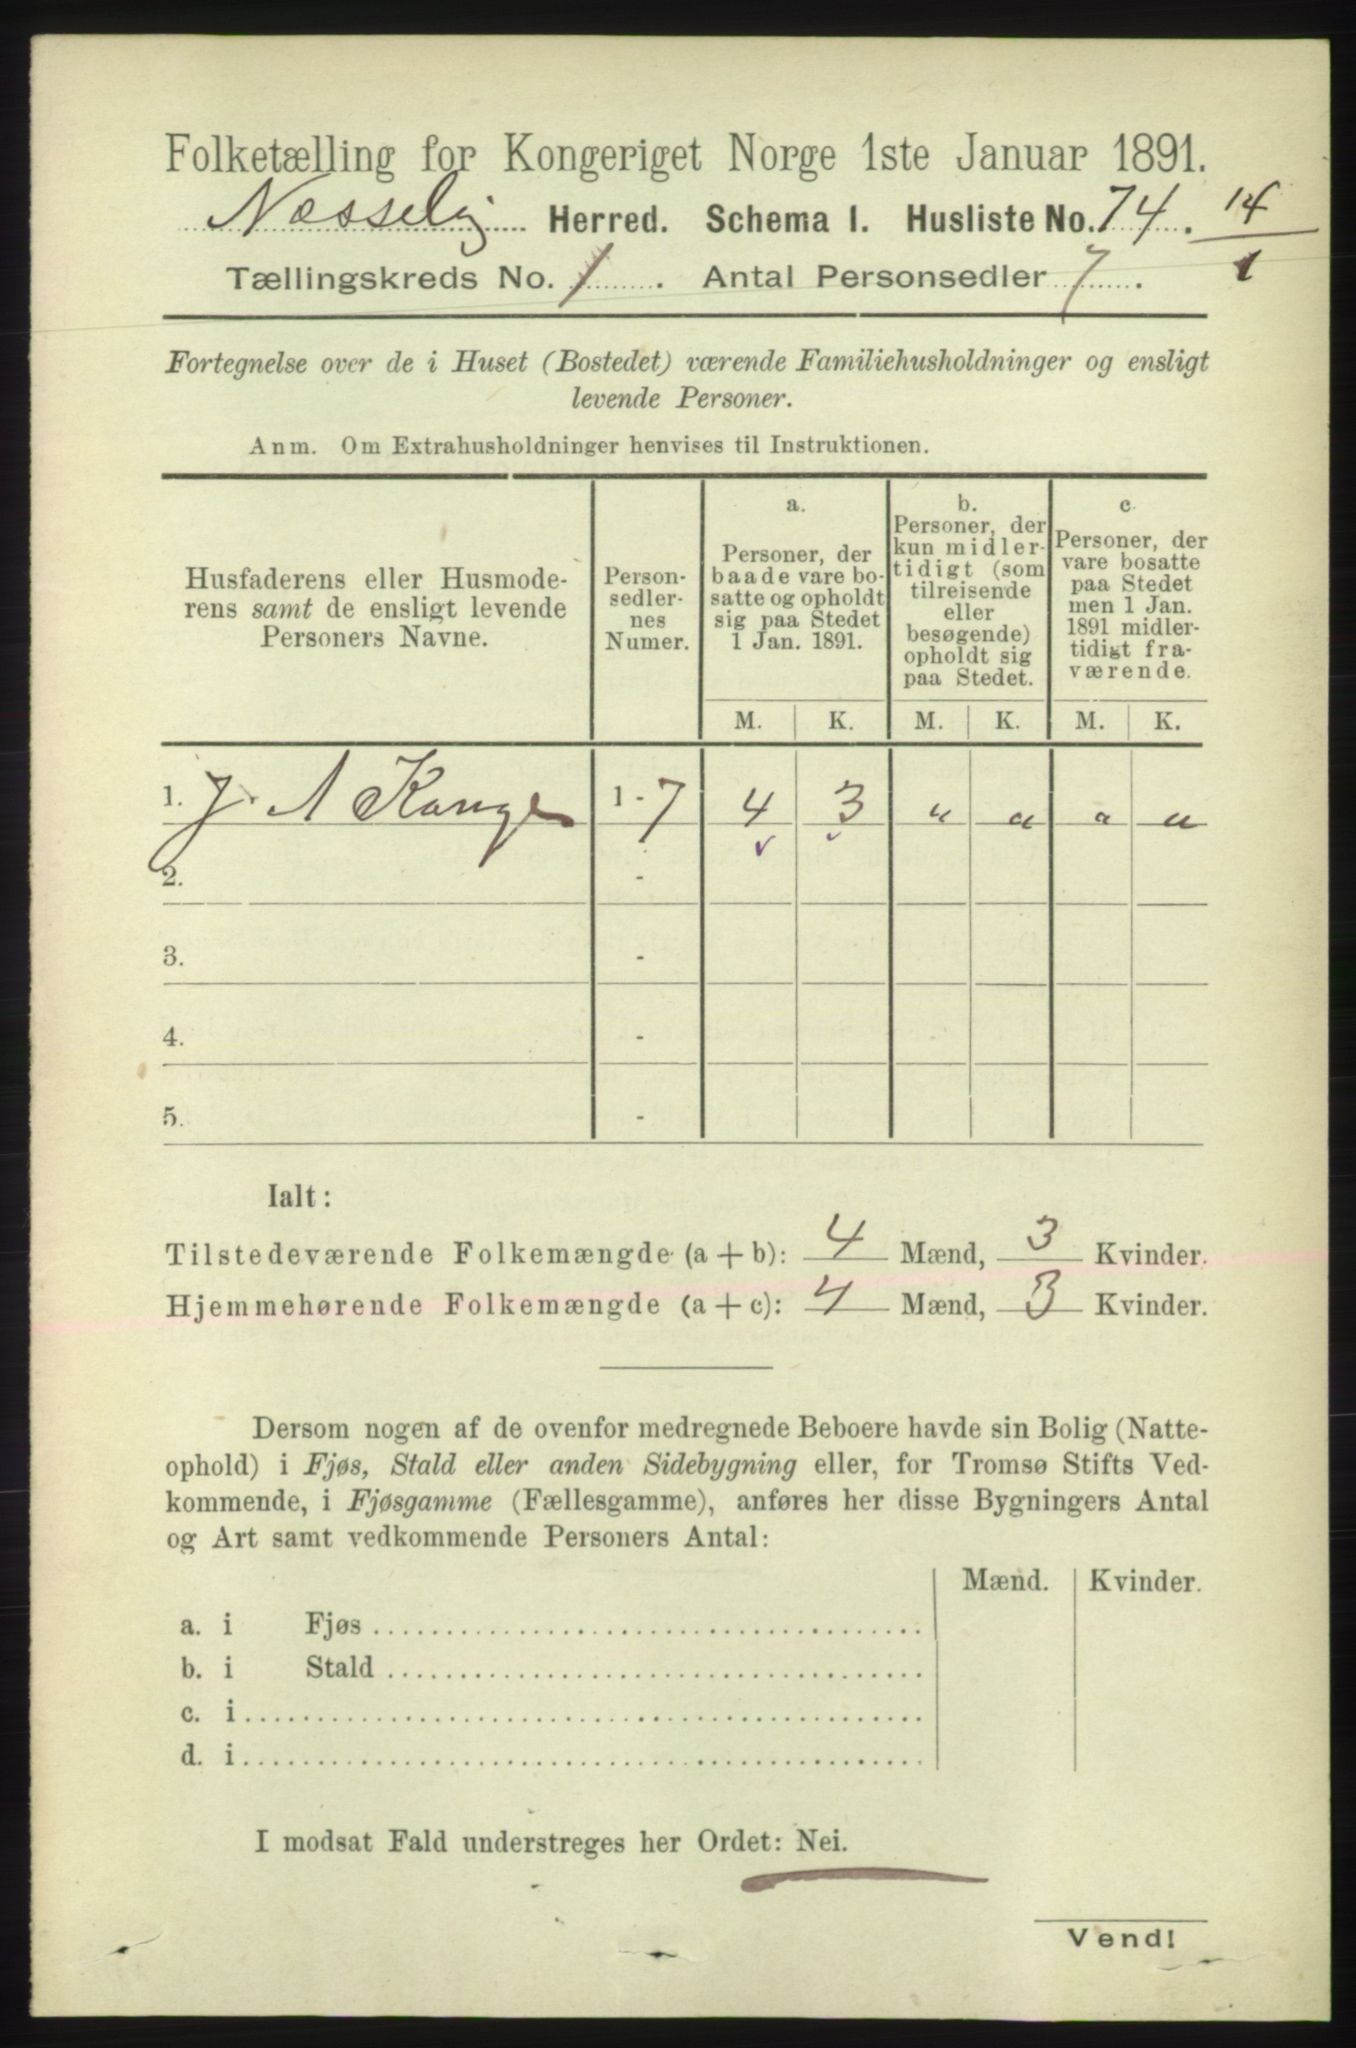 Folketælling for Kongeriget Norge 1ste Januar 1891.
Næsseby Herred. Schema I. Husliste No. 74. 14
Tællingskreds No. 1. Antal Personsedler 7. 1
Fortegnelse over de i Huset (Bostedet) værende Familiehusholdninger og ensligt
levende Personer.
Anm. Om Extrahusholdninger henvises til Instruktionen.
Husfaderens eller Husmode-
rens samt de ensligt levende
Personers Navne.
Person-
sedler-
nes
Numer.
a.
Personer, der
baade vare bo-
satte og opholdt
sig paa Stedet
1 Jan. 1891.
b.
Personer, der
kun midler-
tidigt (som
tilreisende
eller
besøgende)
opholdt sig
paa Stedet.
c.
Personer, der
vare bosatte
paa Stedet
men 1 Jan.
1891 midler-
tidigt fra-
værende.
M. K. M. K. M. K.
1. J. A Kange 1 - 7 4 3 " " " "
2. -
3. -
4. -
5. -
Ialt:
Tilstedeværende Folkemængde (a + b): 4 Mænd, 3 Kvinder.
Hjemmehørende Folkemængde (a + c): 4 Mænd, 3 Kvinder.
Dersom nogen af de ovenfor medregnede Beboere havde sin Bolig (Natte-
ophold) i Fjøs, Stald eller anden Sidebygning eller, for Tromsø Stifts Ved-
kommende, i Fjøsgamme (Fællesgamme), anføres her disse Bygningers Antal
og Art samt vedkommende Personers Antal:
Mænd. Kvinder.
a. i Fjøs
b. i Stald
c. i
d. i
I modsat Fald understreges her Ordet: Nei.
Vend!